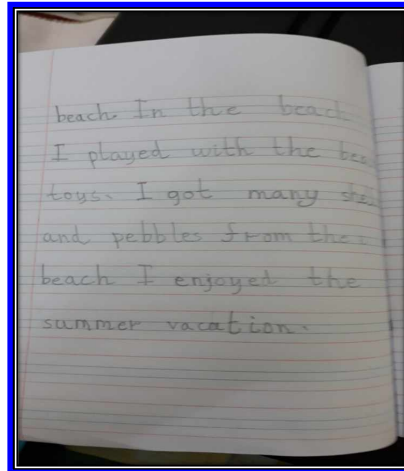 beach. In the beach
I played with the
toys. I got many
and pebbles from the
beach I enjoyed the
summer vacation.